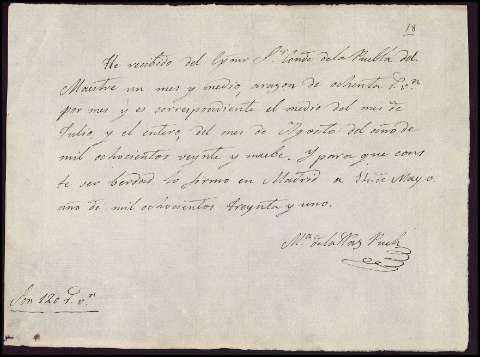 18
He recivido del Exmo Sr. Conde de la Puebla del
Maestre un mes y medio, arazon de ochenta r.s v.n
por mes y es correspondiente el medio del mes de
Julio, y el entero, del mes de Agosto del año de
mil ochocientos veynte y nuebe. Y para que cons
te ser berdad lo firmo en Madrid a de Mayo
año de mil ochocientos treynta y uno.
M.a de la Paz
Son 120 r.s v.n